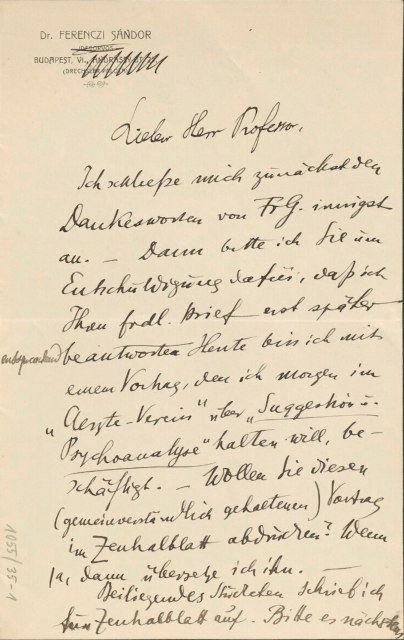 Dr. FERENCZI SÁNDOR
IDEGORVOS
BUDAPEST, VI., ANDRÁSSY-ÚT
Lieber Herr Professor,
Ich schließe mich zunächst den
Dankesworten von Fr G. innigst
an. – Dann bitte ich Sie um
Entschuldigung dafür, daß ich
Ihren frdl. Brief erst später
entsprechend beantworte. Heute bin ich mit
einem Vortrag, den ich morgen im
„Aerzte-Verein" über „Suggestion u.
Psychoanalyse" halten will, be-
schäftigt. – Wollen Sie diesen
(gemeinverständlich gehaltenen) Vortrag
im Zentralblatt abdrucken? Wenn
ja, dann übersetze ich ihn.
Beiliegendes schrieb ich
Zentralblatt auf. Bitte es
1055/35-1